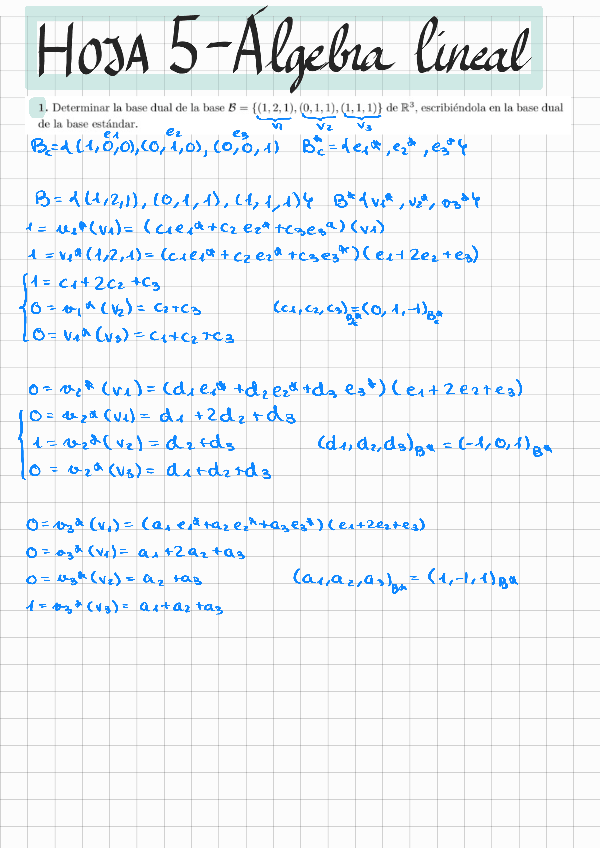 HOJA 5-Álgebra lineal
1. Determinar la base dual de la base B = {(1, 2, 1), (0, 1, 1), (1, 1, 1)} de ℝ³, escribiéndola en la base dual
de la base estándar.
v1 v2 v3
e1 e2 e3
Bc={(1,0,0),(0,1,0),(0,0,1) Bc*={e1*,e2*,e3*}
B={(1,2,1),(0,1,1),(1,1,1)} B*{v1*,v2*,v3*}
1=v1*(v1)=(c1e1*+c2e2*+c3e3*)(v1)
1=v1*(1,2,1)=(c1e1*+c2e2*+c3e3*)(e1+2e2+e3)
1=c1+2c2+c3
0=v1*(v2)=c2+c3 (c1,c2,c3)Bc*=(0,1,-1)Bc*
0=v1*(v3)=c1+c2+c3
0=v2*(v1)=(d1e1*+d2e2*+d3e3*)(e1+2e2+e3)
0=v2*(v1)=d1+2d2+d3
1=v2*(v2)=d2+d3 (d1,d2,d3)B*=(-1,0,1)B*
0=v2*(v3)=d1+d2+d3
0=v3*(v1)=(a1e1*+a2e2*+a3e3*)(e1+2e2+e3)
0=v3*(v1)=a1+2a2+a3
0=v3*(v2)=a2+a3 (a1,a2,a3)B*=(1,-1,1)B*
1=v3*(v3)=a1+a2+a3